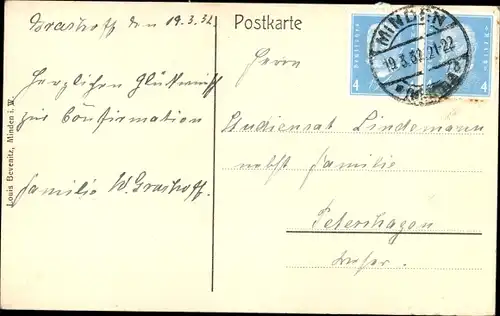 Grashoff den 19.3.32.
Herzlichen Glückwunsch
zur Confirmation
Familie W. Grashoff.
Louis Bevenitz, Minden i. W.
Postkarte
Deutsches Reich
4
4
MINDEN
19.3.32.21-22
Herrn
Studienrat Lindemann
nebst Familie
Petershagen
Weser.